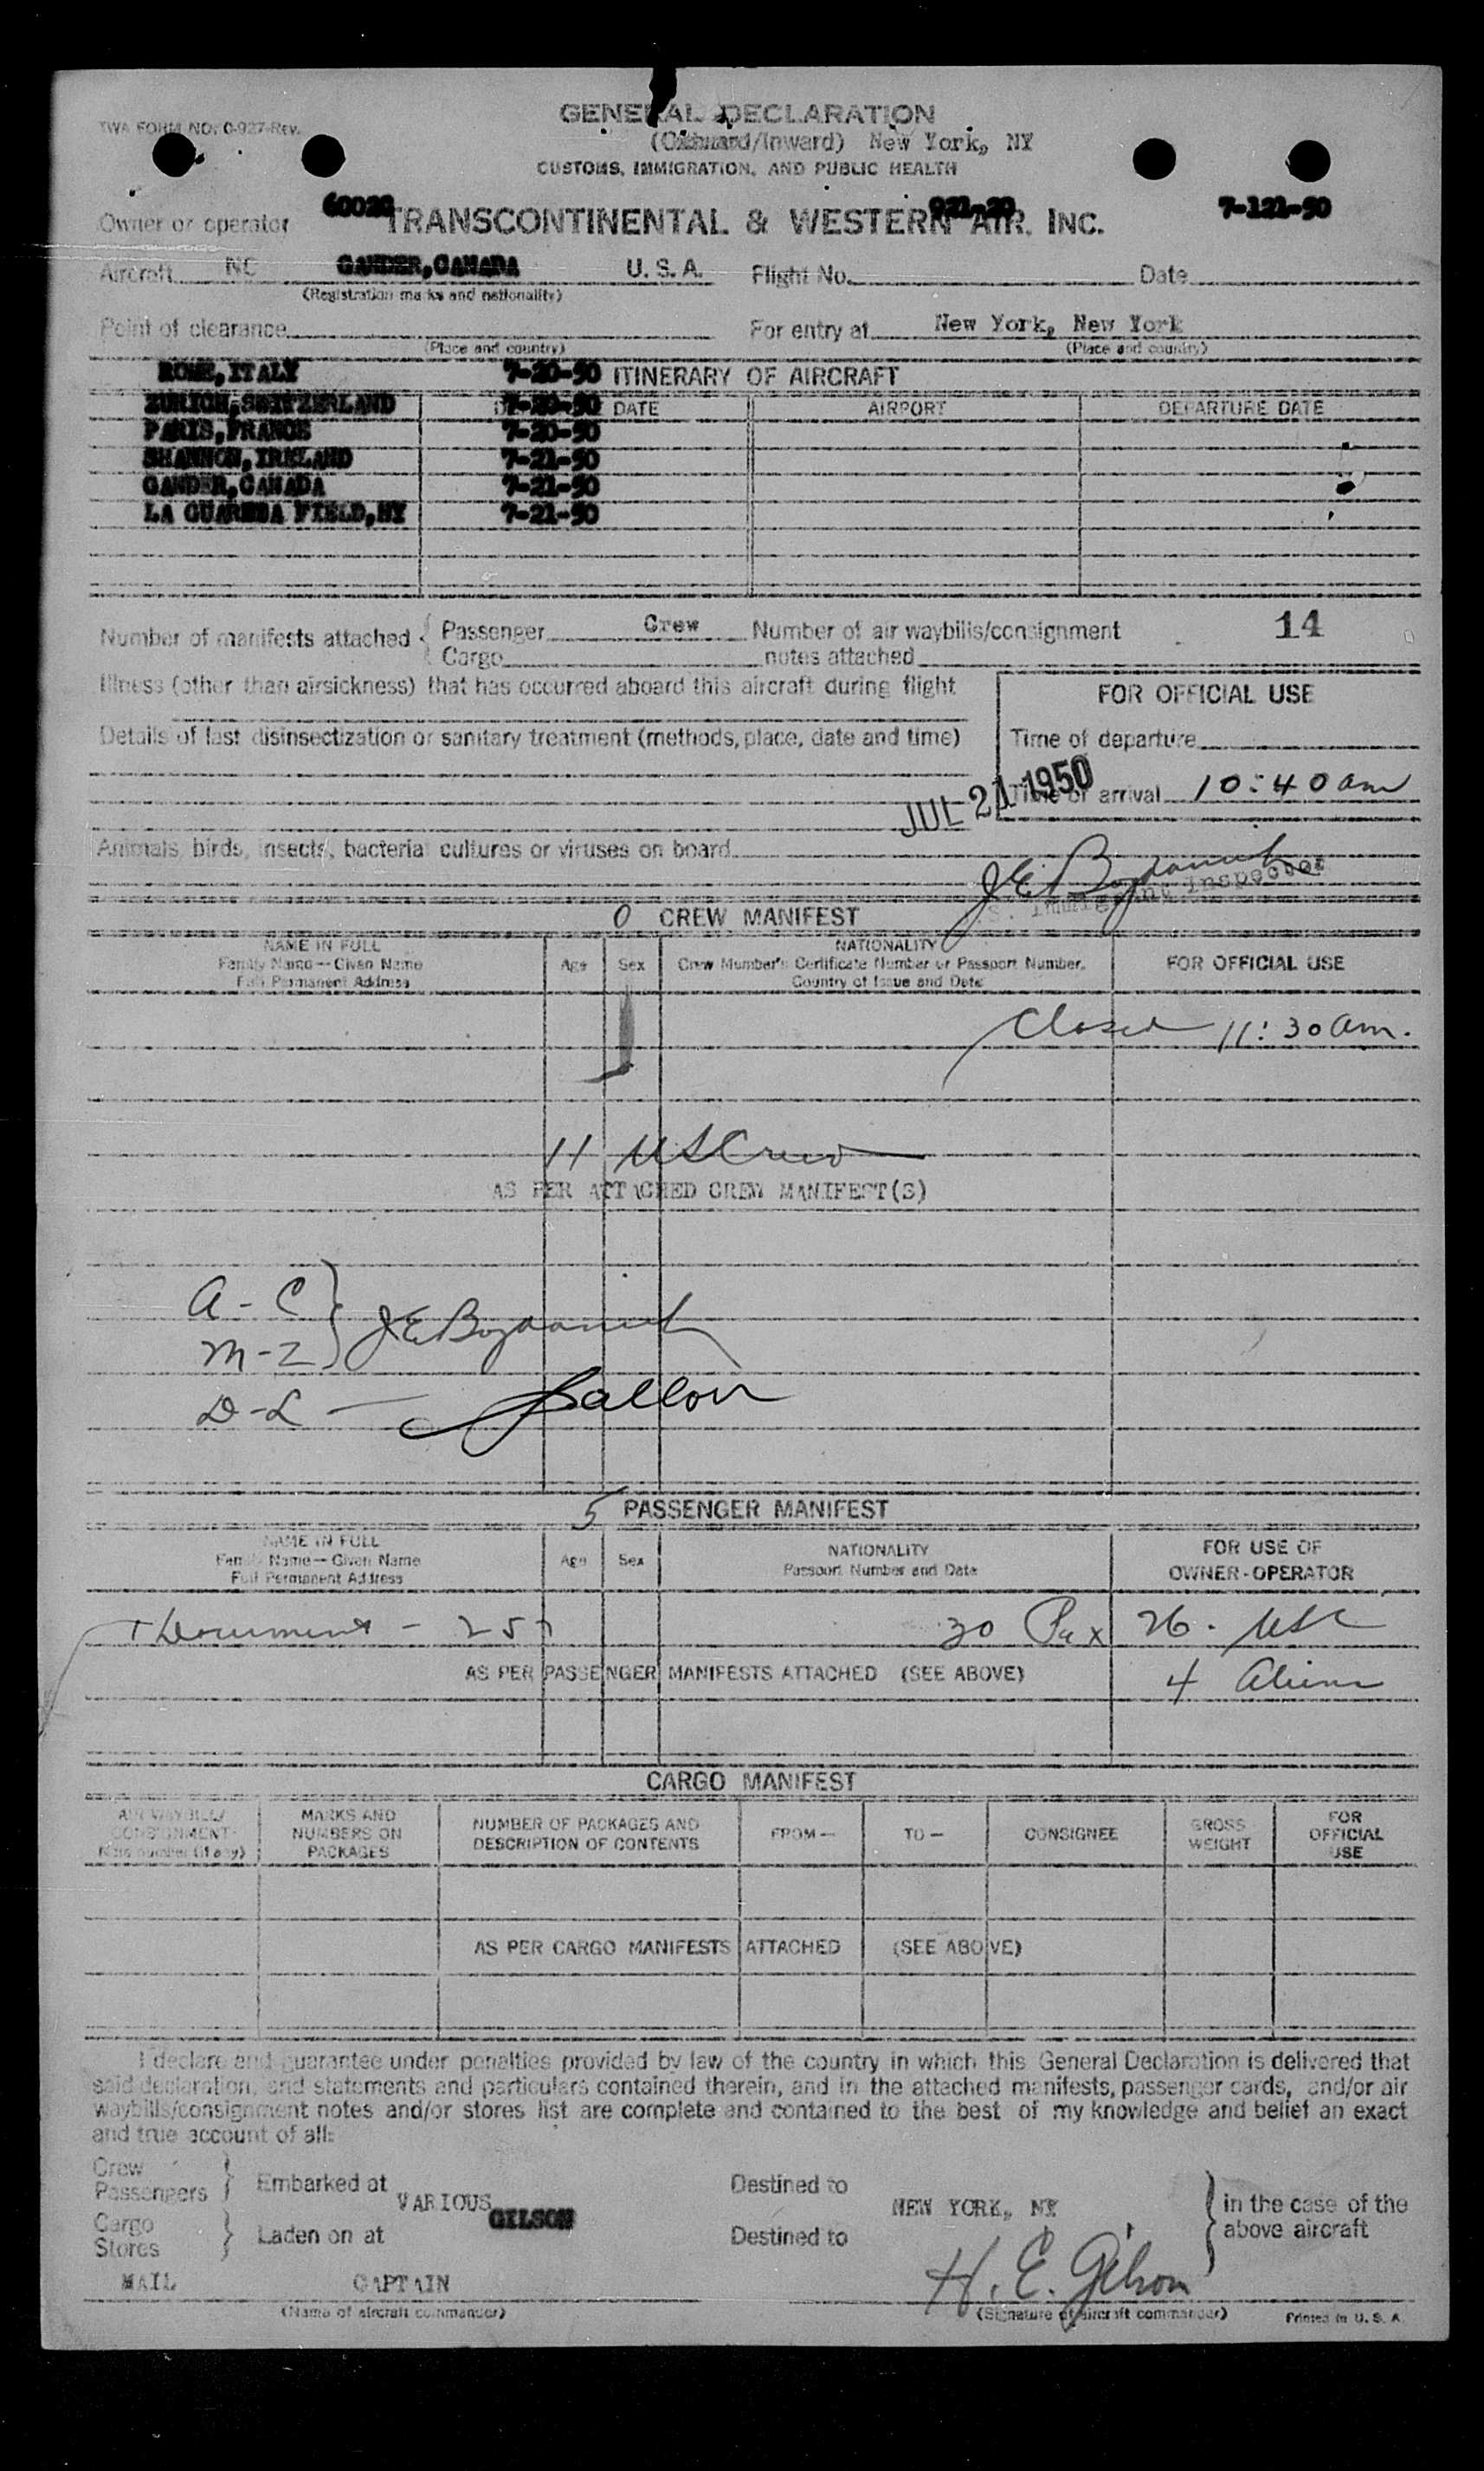 TWA FORM NO. 0-927-Rev.
GENERAL DECLARATION
(Outward/Inward) New York, NY
CUSTOMS, IMMIGRATION, AND PUBLIC HEALTH
Owner or operator TRANSCONTINENTAL & WESTERN AIR, INC.
921-20 7-121-50
Aircraft NC GANDER, CANADA U. S. A. Flight No. Date
(Registration marks and nationality)
Point of clearance For entry at New York, New York
(Place and country) (Place and country)
ROME, ITALY 7-20-50 ITINERARY OF AIRCRAFT
ZURICH, SWITZERLAND 7-20-50 DATE AIRPORT DEPARTURE DATE
PARIS, FRANCE 7-20-50
SHANNON, IRELAND 7-21-50
GANDER, CANADA 7-21-50
LA GUARDIA FIELD, NY 7-21-50
Number of manifests attached { Passenger Crew Number of air waybills/consignment 14
Cargo notes attached
Illness (other than airsickness) that has occurred aboard this aircraft during flight
FOR OFFICIAL USE
Details of last disinsectization or sanitary treatment (methods, place, date and time)
Time of departure
JUL 21 1950
Time of arrival 10:40 am
Animals, birds, insects, bacterial cultures or viruses on board
Immigrant Inspector
0 CREW MANIFEST
NAME IN FULL
Family Name—Given Name
Full Permanent Address
Age Sex
NATIONALITY
Crew Member's Certificate Number or Passport Number,
Country of Issue and Date
FOR OFFICIAL USE
Closed 11:30 am.
11 US Crew
AS PER ATTACHED CREW MANIFEST(S)
A - C }
M - Z }
D - L -
5 PASSENGER MANIFEST
NAME IN FULL
Family Name—Given Name
Full Permanent Address
Age Sex
NATIONALITY
Passport Number and Date
FOR USE OF
OWNER-OPERATOR
30 Pax 26 - USC
AS PER PASSENGER MANIFESTS ATTACHED (SEE ABOVE)
4 Aliens
CARGO MANIFEST
AIR WAYBILL/
CONSIGNMENT-
Note number (if any)
MARKS AND
NUMBERS ON
PACKAGES
NUMBER OF PACKAGES AND
DESCRIPTION OF CONTENTS
FROM—
TO—
CONSIGNEE
GROSS
WEIGHT
FOR
OFFICIAL
USE
AS PER CARGO MANIFESTS ATTACHED (SEE ABOVE)
I declare and guarantee under penalties provided by law of the country in which this General Declaration is delivered that
said declaration, and statements and particulars contained therein, and in the attached manifests, passenger cards, and/or air
waybills/consignment notes and/or stores list are complete and contained to the best of my knowledge and belief an exact
and true account of all:
Crew
Passengers } Embarked at VARIOUS Destined to NEW YORK, NY } in the case of the
above aircraft
GILSON
Cargo
Stores } Laden on at Destined to
MAIL CAPTAIN H. E. Gilson
(Name of aircraft commander) (Signature of aircraft commander) Printed in U. S. A.